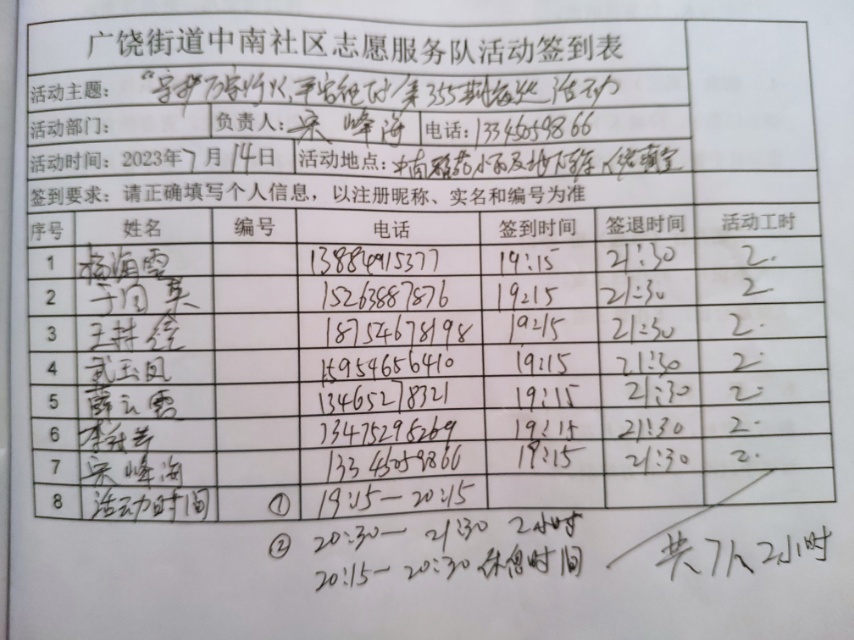 广饶街道中南社区志愿服务队活动签到表
活动主题： 万家灯火 第355期 活动
活动部门： 负责人：宋峰海 电话：13345059866
活动时间：2023年7月14日 活动地点：中南
签到要求：请正确填写个人信息，以注册昵称、实名和编号为准
序号 姓名 编号 电话 签到时间 签退时间 活动工时
1 杨海霞 13884915377 19:15 21:30 2.
2 15263887876 19:15 21:30 2
3 18754678198 19:15 21:30 2.
4 武玉凤 15954656410 19:15 21:30 2.
5 薛云霞 13465278321 19:15 21:30 2.
6 13475296269 19:15 21:30 2.
7 宋峰海 13345059866 19:15 21:30 2.
8 活动时间 ① 19:15—20:15
② 20:30—21:30 2小时
20:15—20:30休息时间
共7人2小时